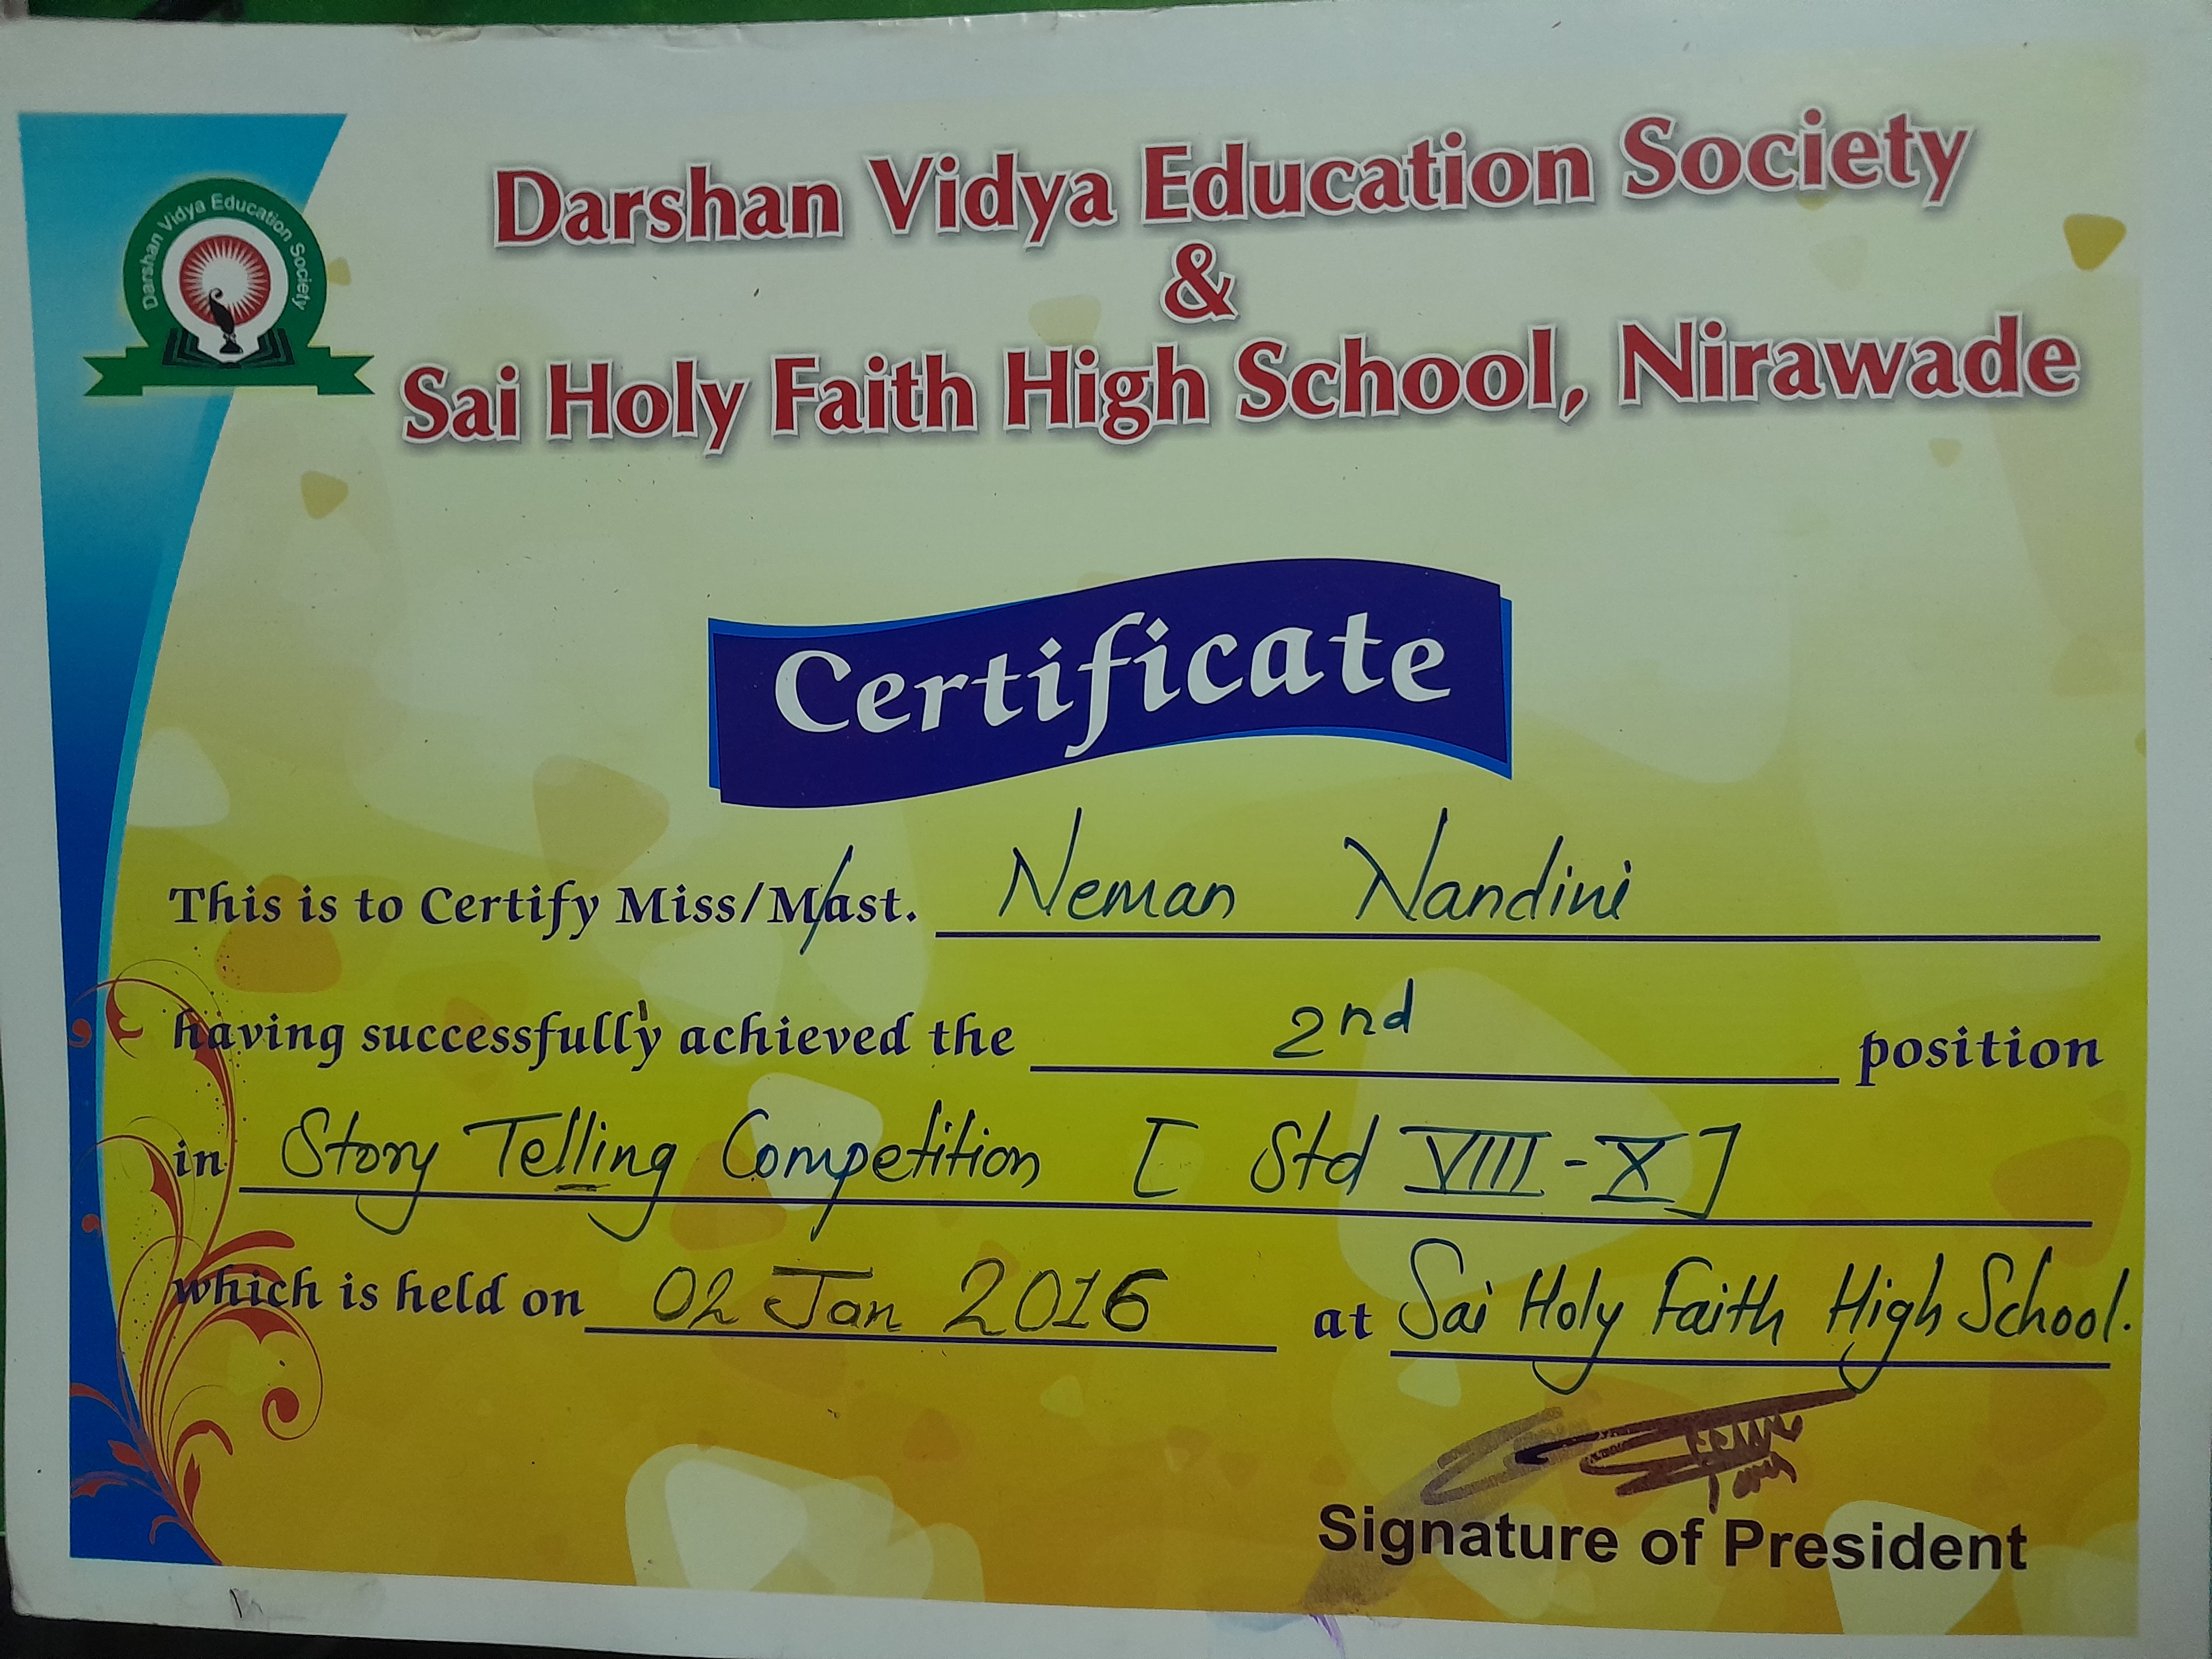 Darshan Vidya Education Society
Darshan Vidya Education Society
&
Sai Holy Faith High School, Nirawade
Certificate
This is to Certify Miss/Mast. Neman Nandini
having successfully achieved the 2nd position
in Story Telling Competition [ Std VIII - X ]
which is held on 02 Jan 2016 at Sai Holy Faith High School.
Signature of President